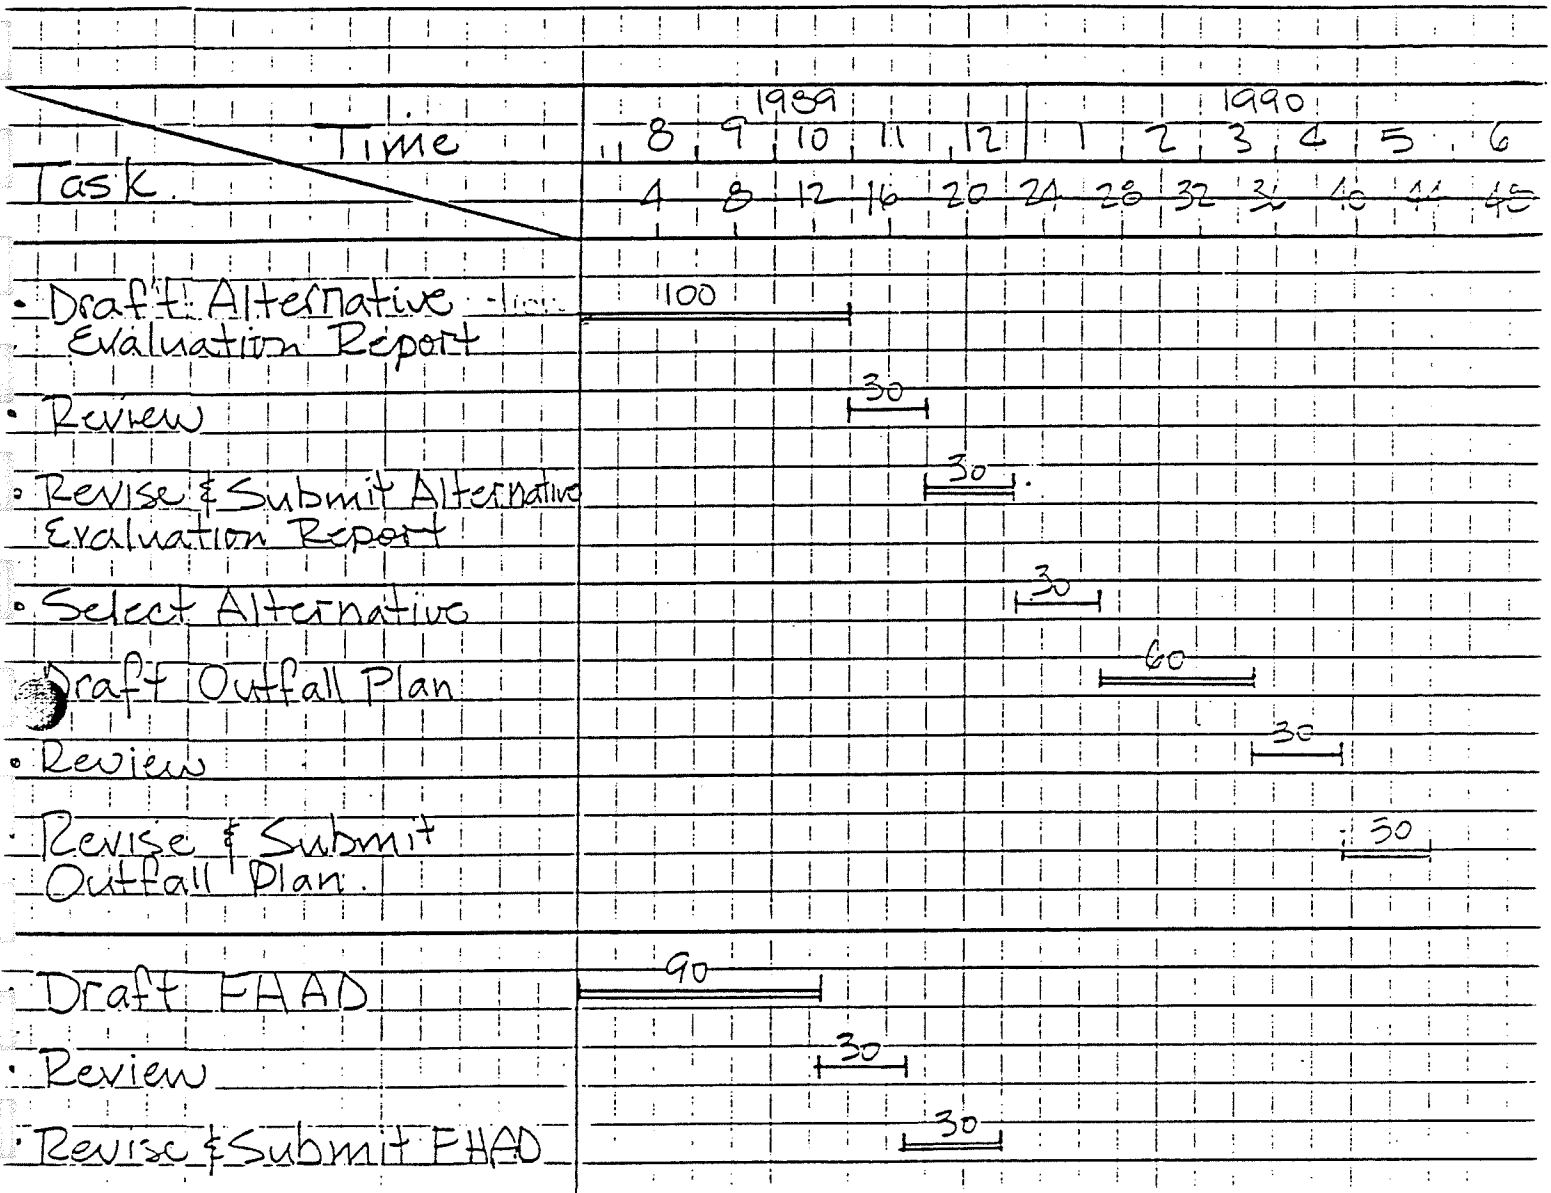 1989 1990
Time 8 9 10 11 12 1 2 3 4 5 6
Task. 4 8 12 16 20 24 28 32 36 40 44 48
• Draft Alternative 100
Evaluation Report
30
• Review
30
• Revise & Submit Alternative
Evaluation Report
30
• Select Alternative
60
Draft Outfall Plan
30
• Review
• Revise & Submit 30
Outfall Plan.
90
• Draft FHAD
30
• Review
30
• Revise & Submit FHAD